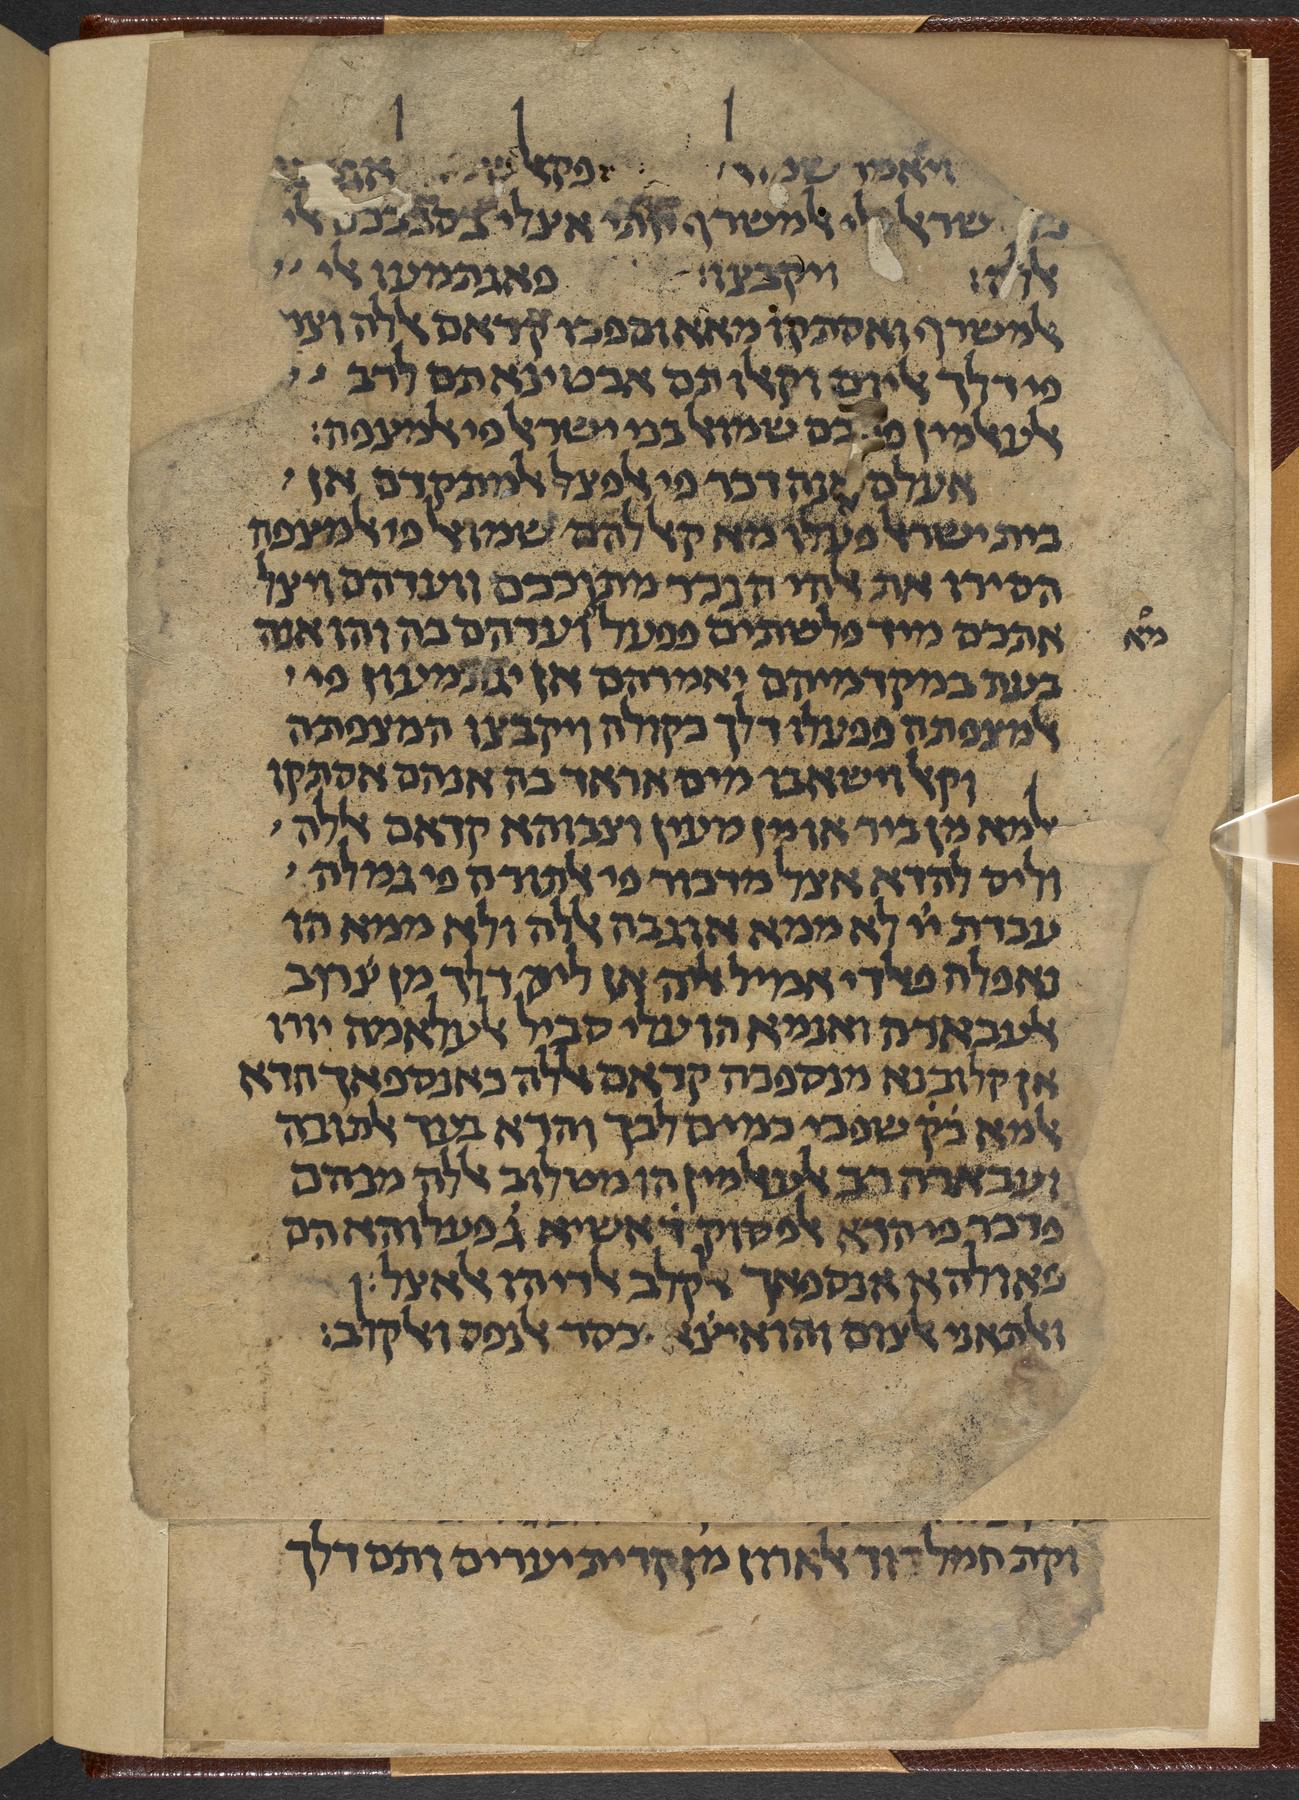 ויאמר פקאל
ישראל אלי אלמשרף חתי אצלי בסבבכם אלי
אללה: ויקבצו: פאגתמעו אלי
אלמשרף ואסתקו מאא וספכו קדאם אללה וצו
פי דלך אליום וקאלו תם אכטינא תם לרב
אלעאלמין שמואל בני ישראל פי אלמצפה:
אעלם אנה דכר פי אלפצל אלמתקדם אן
בית ישראל פעלו מא קאל להם שמואל פי אלמצפה
הסירו את אלהי הנכר מתוככם ווערהם ויצל
אתכם מיד פלשתים ففعل וערהם בה והו אנה
בעת במקדמיהם יאמרהם אן יגתמעון פי
אלמצפתה פפעלו דלך כקולה ויקבצו המצפתה
וקאל וישאבו מים אראד בה אנהם אסתקו
אלמא מן ביר או מן מעין וצבוהא קדאם אללה
וליס להדא אצל מדכור פי אלתורה פי גמלה
עבדת יי לא ממא אוגבה אללה ולא ממא הו
נאפלה פאלדי אמיל אליה אן ליס דלך מן צרוב
אלעבאדה ואנמא הו עלי סביל אלעלאמה יורו
אן קלובנא מנספכה קדאם אללה כאנספאך הדא
אלמא כק שפכי כמים לבך והדא בעד אלתובה
ועבאדה רב אלעאלמין הו מטלוב אללה מנהם
פדכר פי הדא אלפסוק ד אשיא ג פעלוהא הם
פאולהא אנספאך אלקלב אלדי הו אלאצל:
ואלתאני אלצום והו איצא כסר אלנפס ואלקלב:
מא
וקת חמל דוד אלארון מן קרית יערים ותם דלך